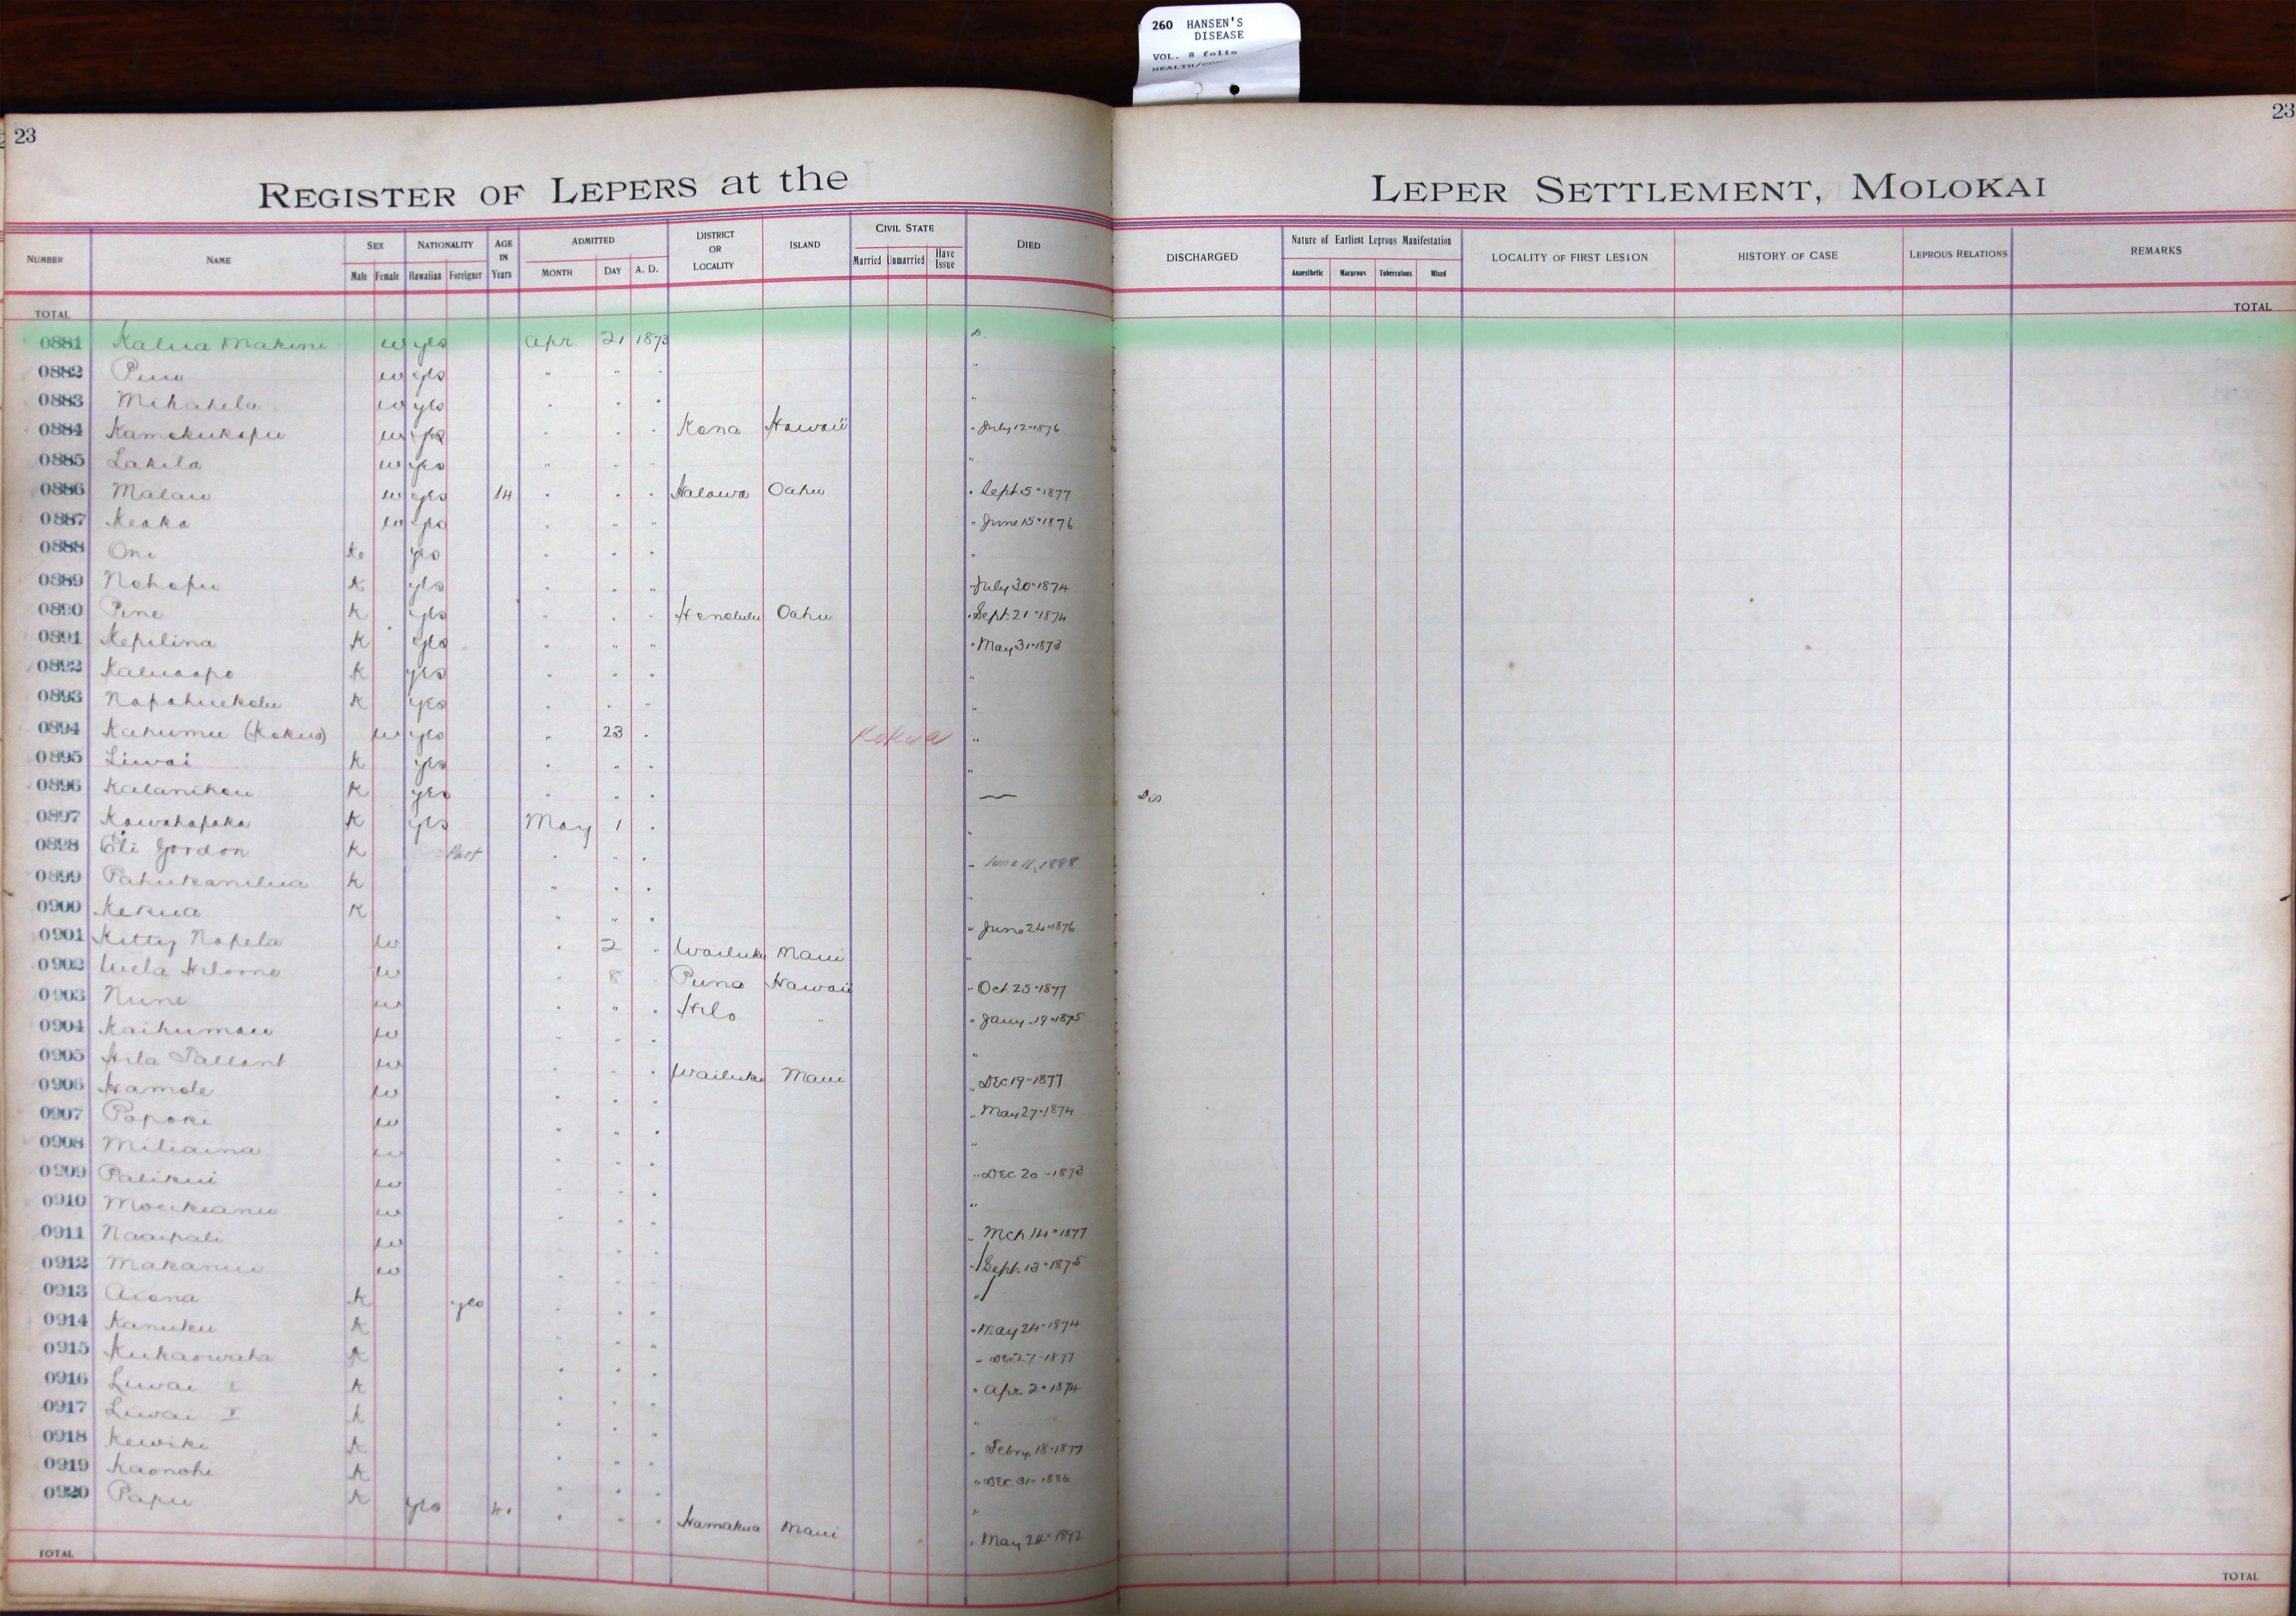 260 HANSEN'S
DISEASE
VOL. 8 folio
23
23
REGISTER OF LEPERS at the LEPER SETTLEMENT, MOLOKAI
NUMBER NAME SEX NATIONALITY AGE IN Years ADMITTED DISTRICT OR LOCALITY ISLAND CIVIL STATE DIED DISCHARGED Nature of Earliest Leprous Manifestation LOCALITY OF FIRST LESION HISTORY OF CASE LEPROUS RELATIONS REMARKS
Male Female Hawaiian Foreigner MONTH DAY A. D. Married Unmarried Have Issue Anaesthetic Macurous Tuberculous Mixed
TOTAL TOTAL
0881 Kalua Makini w yes Apr 21 1873 D.
0882 w yes " " " "
0883 Mikahela w yes " " " "
0884 Kamokukapu w yes " " " Kona Hawaii " July 12" 1876
0885 Lakila w yes " " " "
0886 Malau w yes 14 " " " Halawa Oahu " Sept. 5" 1877
0887 Keaka w yes " " " " June 15" 1876
0888 Oni K yes " " " "
0889 Nohopu K yes " " " " July 30" 1874
0890 Pine K yes " " " Honolulu Oahu " Sept. 21" 1874
0891 Kepilina K yes " " " " May 31" 1873
0892 Kaluaapo K yes " " " "
0893 Napahuekolu K yes " " " "
0894 Kahumu (Kokua) w yes " 23 " Kokua "
0895 Liwai K yes " " " "
0896 Kalanihou K yes " " " — Dis
0897 Kawahapaka K yes May 1 " "
0898 Eli Gordon K Part " " " " June 11, 1888
0899 Pahukanilua K " " " "
0900 Kekua K " " " " June 24" 1876
0901 Kitty Napela w " 2 " Wailuku Maui "
0902 w " 8 Puna Hawaii " Oct. 25" 1877
0903 Nune w " " " Hilo " " Jany. 19" 1875
0904 Kaihumau w " " " "
0905 Hila Tallant w " " " Wailuku Maui " Dec 19" 1877
0906 Hamole w " " " " May 27" 1874
0907 Papoki w " " " "
0908 Miliaina w " " " " Dec. 20" 1873
0909 Palikui w " " " "
0910 Moeikeanu w " " " " Mch 14" 1877
0911 Naaipali w " " " " Sept. 13" 1875
0912 Makanui w " " " "
0913 Aiona K yes " " " " May 24" 1874
0914 Kanuku K " " " Dec 27" 1877
0915 Kukaowaha K " " " " Apr. 2" 1874
0916 Liwai I K " " " "
0917 Liwai K " " " " Febry. 18" 1877
0918 Kewiki K " " " " Dec 31" 1886
0919 Kaonohi K " " " "
0920 Papu K yes " " " Hamakua Maui " May 24" 1892
TOTAL TOTAL